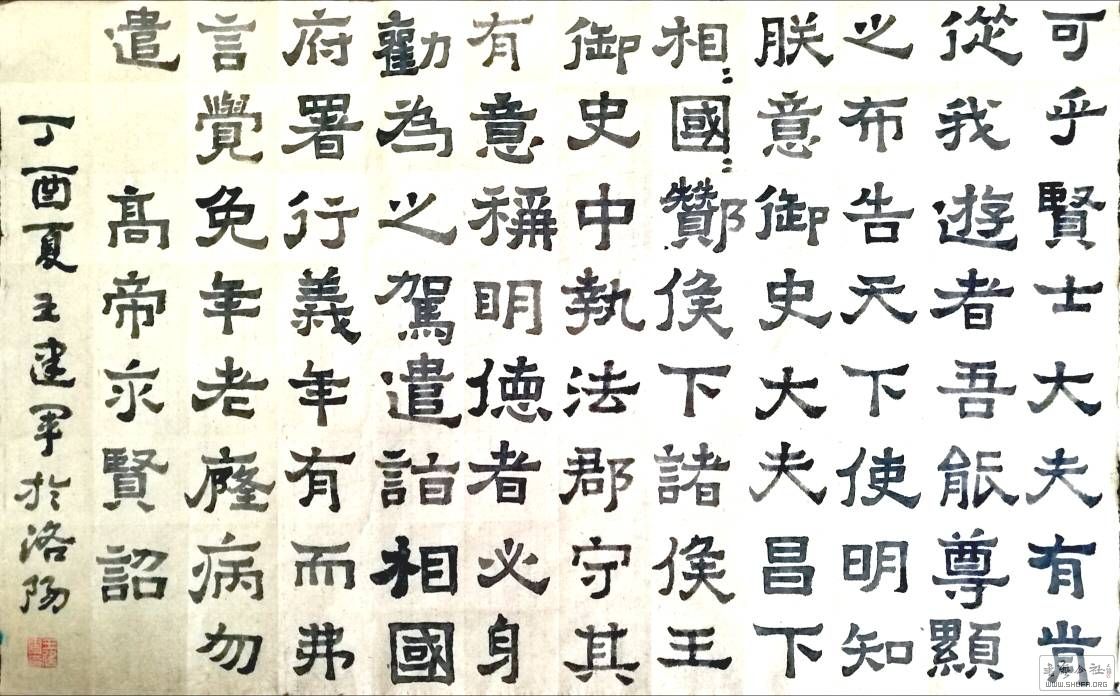 可乎賢士大夫有肯
從我遊者吾能尊顯
之布告天下使明知
朕意御史大夫昌下
相:國:酇侯下諸侯王
御史中執法郡守其
有意稱明德者必身
勸為之駕遣詣相國
府署行義年有而弗
言覺免年老癃病勿
遣 高帝求賢詔
丁酉夏王建軍於洛陽
WWW.SHUFA.ORG